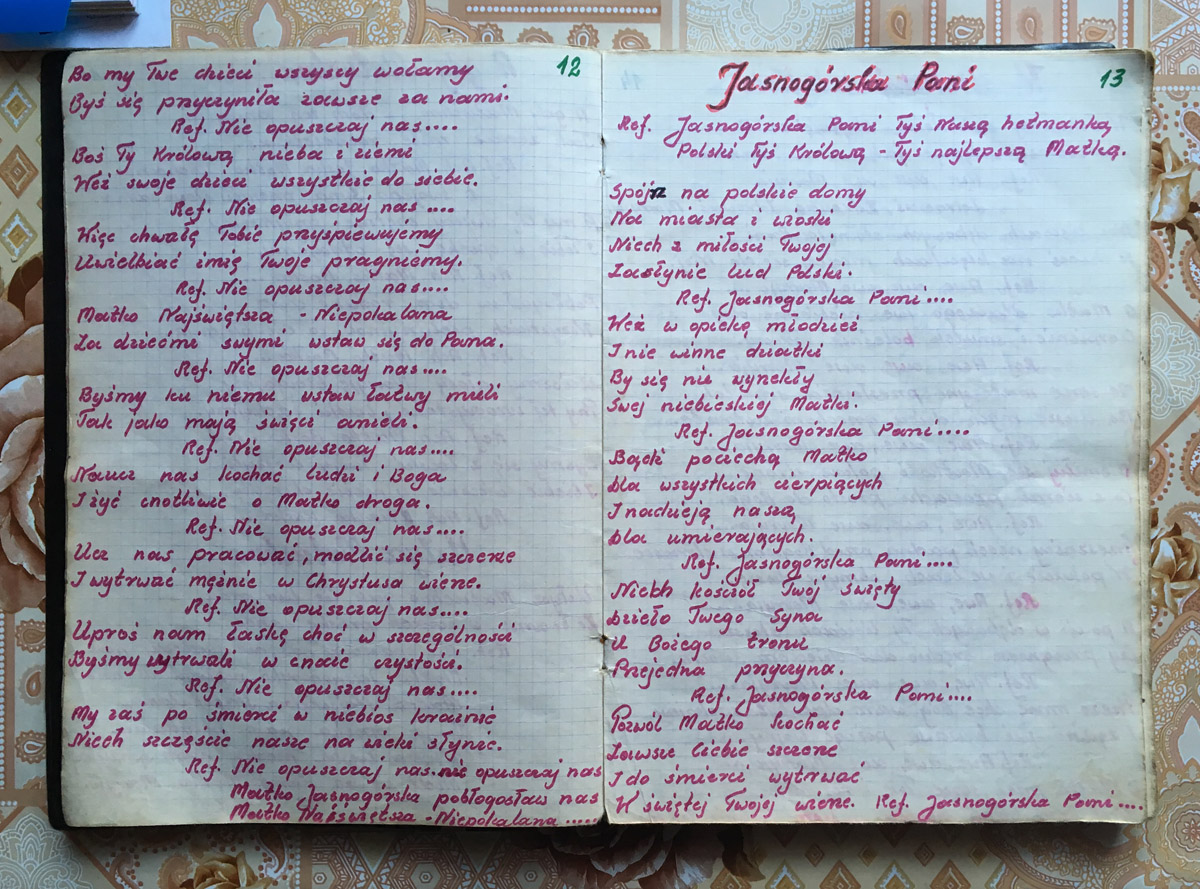 12
Bo my Twe dzieci wszyscy wołamy
Byś się przyczyniła zawsze za nami.
Ref. Nie opuszczaj nas....
Boś Ty Królową nieba i ziemi
Weź swoje dzieci wszystkie do siebie.
Ref. Nie opuszczaj nas....
Więc chwałę Tobie przyśpiewujemy
Uwielbiać imię Twoje pragniemy.
Ref. Nie opuszczaj nas....
Matko Najświętsza - Niepokalana
Za dziećmi swymi wstaw się do Pana.
Ref. Nie opuszczaj nas....
Byśmy ku niemu ustaw łatwy mieli
Tak jako mają święci anieli.
Ref. Nie opuszczaj nas....
Naucz nas kochać ludzi i Boga
I żyć cnotliwie o Matko droga.
Ref. Nie opuszczaj nas....
Ucz nas pracować, modlić się szczerze
I wytrwać mężnie w Chrystusa wierze.
Ref. Nie opuszczaj nas....
Uproś nam łaskę choć w szczególności
Byśmy wytrwali w cnocie czystości.
Ref. Nie opuszczaj nas....
My zaś po śmierci w niebios krainie
Niech szczęście nasze na wieki słynie.
Ref. Nie opuszczaj nas. nie opuszczaj nas
Matko Jasnogórska pobłogosław nas
Matko Najświętsza - Niepokalana .....
Jasnogórska Pani 13
Ref. Jasnogórska Pani Tyś Naszą hetmanką
Polski Tyś Królową - Tyś najlepszą Matką.
Spójrz na polskie domy
Na miasta i wioski
Niech z miłości Twojej
Zasłynie lud Polski.
Ref. Jasnogórska Pani....
Weź w opiekę młodzież
I nie winne dziatki
By się nie wyrekły
Swej niebieskiej Matki.
Ref. Jasnogórska Pani....
Bądź pociechą Matko
Dla wszystkich cierpiących
I nadzieją naszą
Dla umierających.
Ref. Jasnogórska Pani....
Niech kościół Twój święty
Dzieło Twego Syna
U Bożego tronu
Przejedna przyczyna.
Ref. Jasnogórska Pani....
Pozwól Matko kochać
Zawsze Ciebie szczerze
I do śmierci wytrwać
W świętej Twojej wierze. Ref. Jasnogórska Pani....